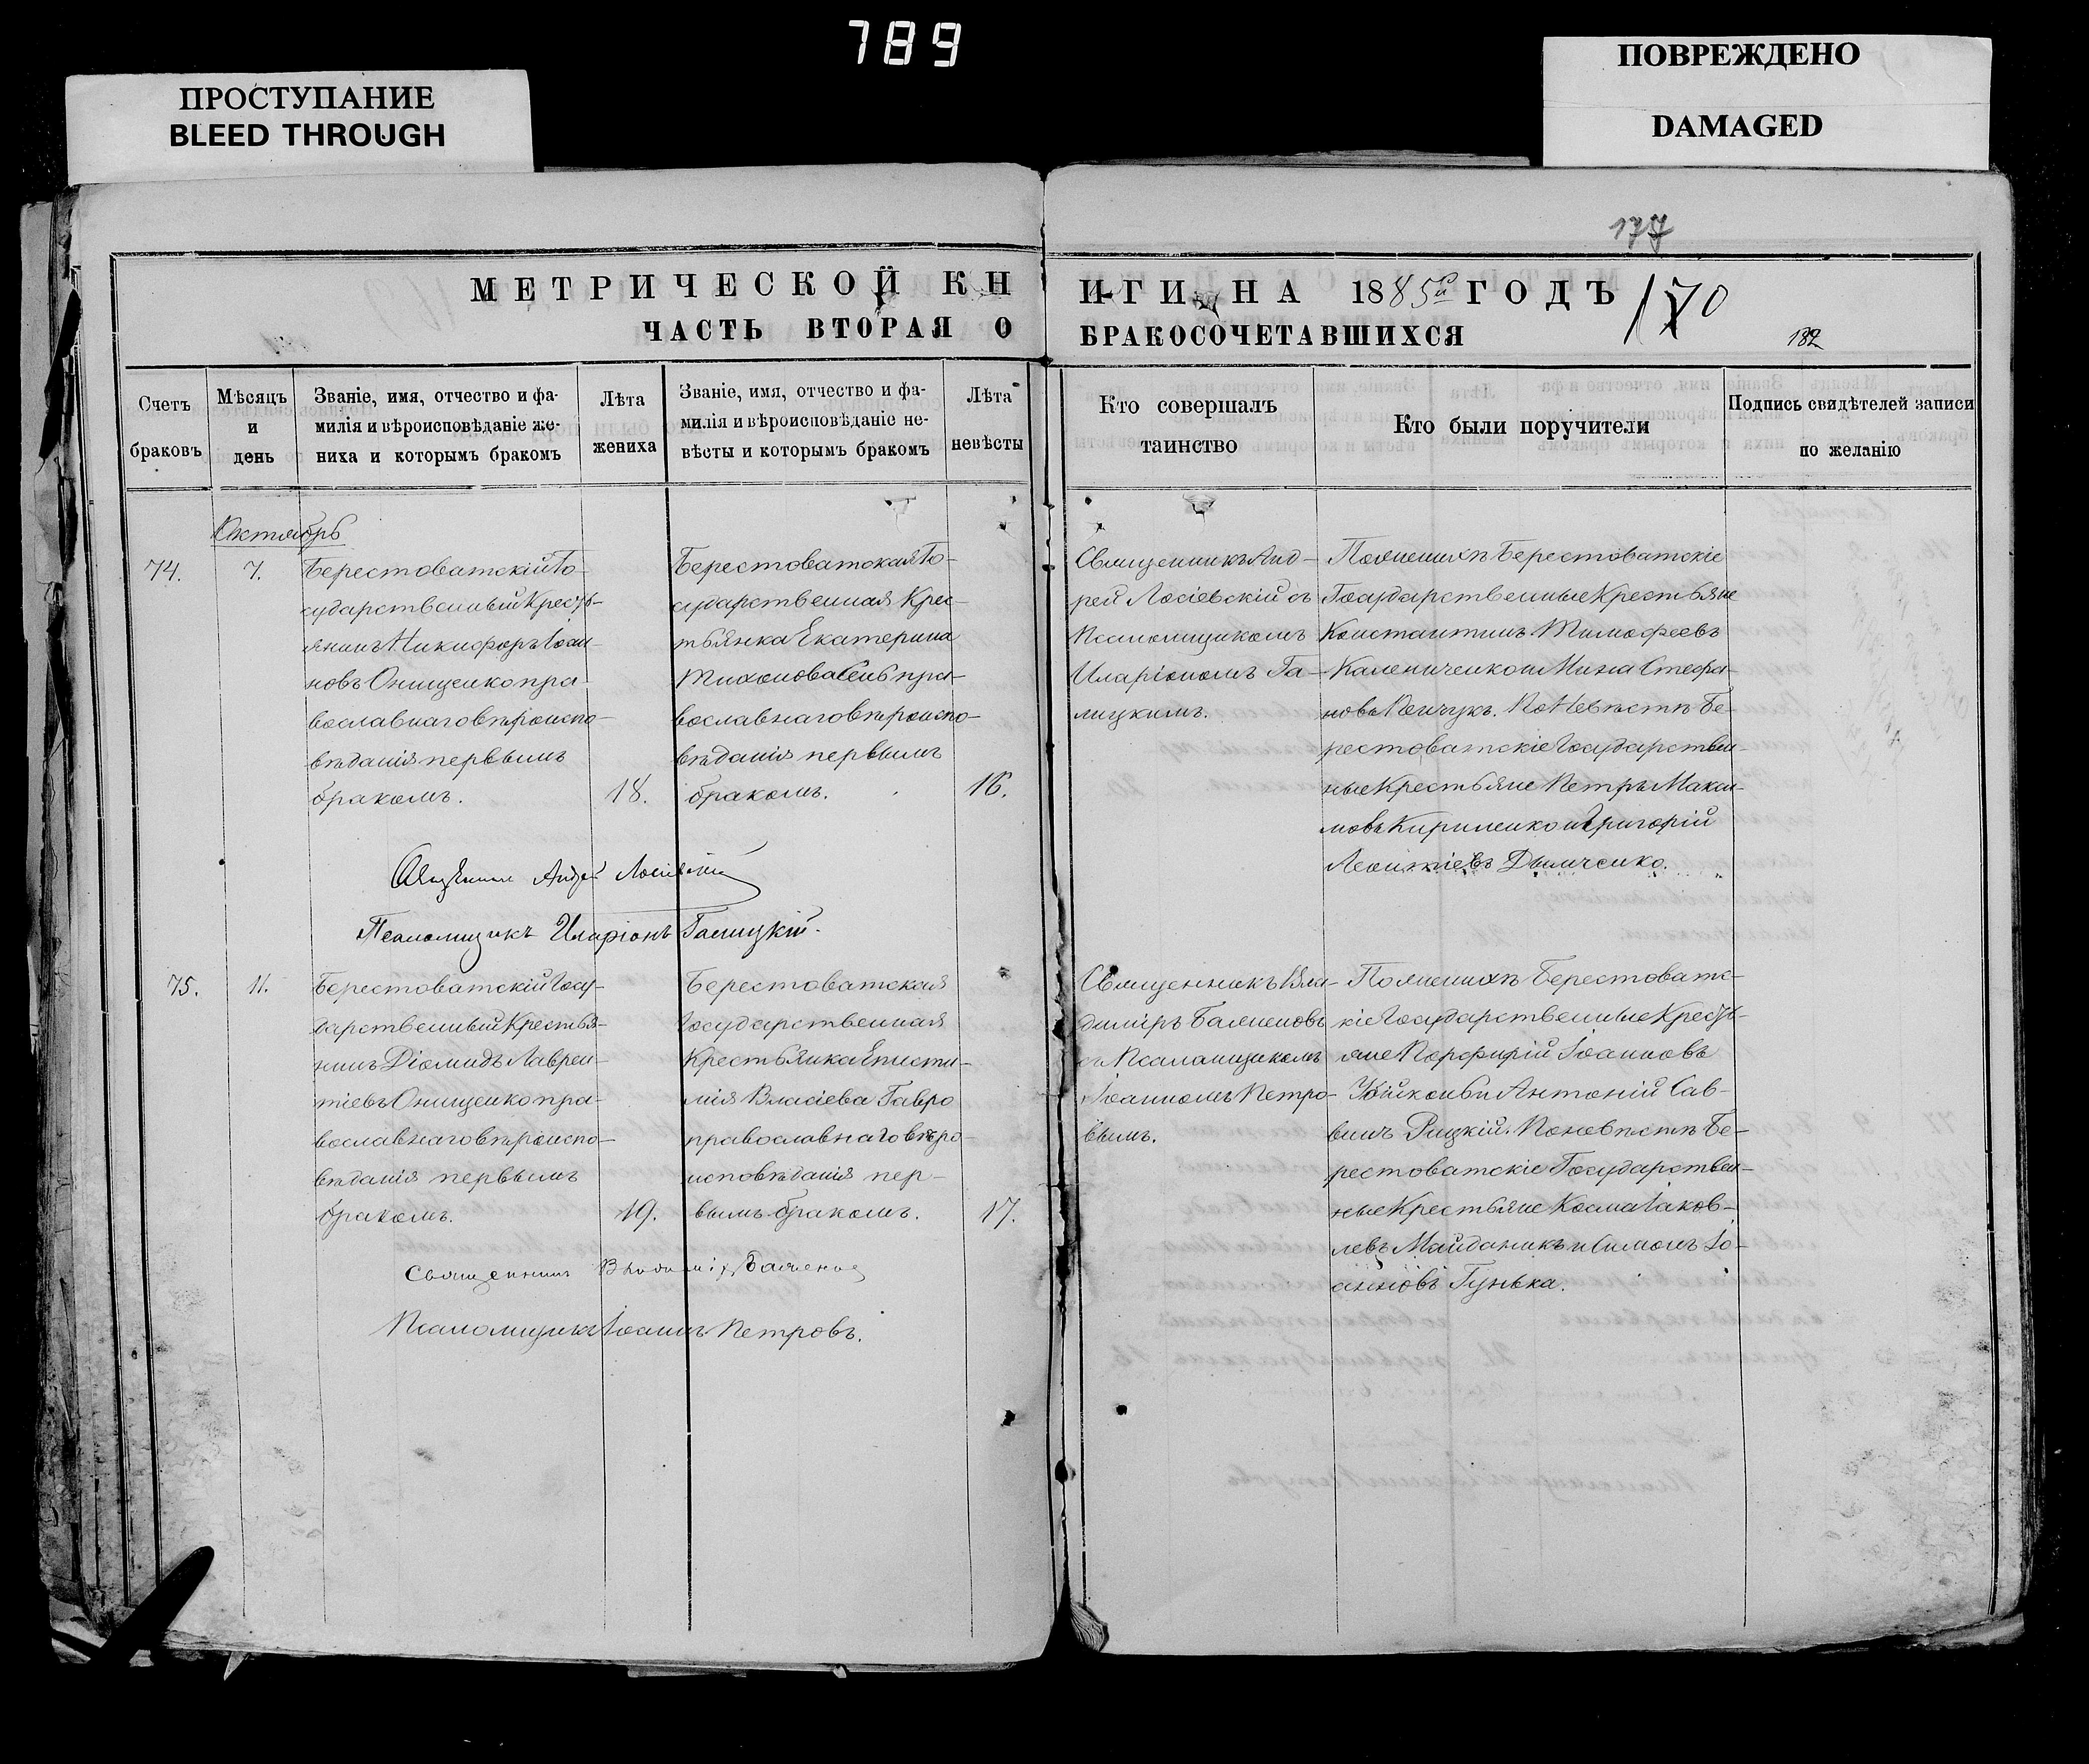 789
ПРОСТУПАНИЕ
BLEED THROUGH
ПОВРЕЖДЕНО
DAMAGED
177
МЕТРИЧЕСКОЙ КН
ЧАСТЬ ВТОРАЯ О
ИГИ НА 1885й ГОДЪ 170
БРАКОСОЧЕТАВШИХСЯ
182
Счетъ
браковъ
Мѣсяцъ
и
день
Званіе, имя, отчество и фа-
милія и вѣроисповѣданіе же-
ниха и которымъ бракомъ
Лѣта
жениха
Званіе, имя, отчество и фа-
милія и вѣроисповѣданіе не-
вѣсты и которымъ бракомъ
Лѣта
невѣсты
Кто совершалъ
таинство
Кто были поручители
Подпись свидѣтелей записи
по желанію
Октябрь
74.
7.
Берестоватскій Го-
сударственный Кресть-
янинъ Никифоръ Іоан-
новъ Онищенко пра-
вославнаго вѣроиспо-
вѣданія первымъ
бракомъ.
18.
Берестоватская Го-
сударственная Крес-
тьянка Екатерина
Тихонова Сень пра-
вославнаго вѣроиспо-
вѣданія первымъ
бракомъ.
16.
Священникъ Анд-
рей Лосіевскій съ
Псаломщикомъ
Иларіономъ Га-
лицкимъ.
По женихѣ Берестоватскіе
Государственные Крестьяне
Константинъ Тимофеевъ
Калениченко и Мина Стефа-
новъ Пенчукъ. По Невѣстѣ Бе-
рестоватскіе Государствен-
ные Крестьяне Петръ Макси-
мовъ Кириленко и Григорій
Леонтіевъ Дымченко.
Священникъ Андрей Лосіевскій
Псаломщикъ Иларіонъ Галицкій.
75.
11.
Берестоватскій Госу-
дарственный Крестья-
нинъ Діомидъ Лаврен-
тіевъ Онищенко пра-
вославнаго вѣроиспо-
вѣданія первымъ
бракомъ.
19.
Берестоватская
Государственная
Крестьянка Еписти-
мія Власіева Гавро
православнаго вѣро-
исповѣданія пер-
вымъ бракомъ.
17.
Священникъ Вла-
димиръ Баженовъ
съ Псаломщикомъ
Іоанномъ Петро-
вымъ.
По женихѣ Берестоватс-
кіе Государственные Кресть-
яне Порфирій Іоанновъ
и Антоній Сав-
винъ Рицкій. По невѣстѣ Бе-
рестоватскіе Государствен-
ные Крестьяне Косма Іаков-
левъ Майданикъ и Симонъ Іо-
анновъ Гунька.
Священникъ Владиміръ Баженов
Псаломщикъ Іоаннъ Петровъ.